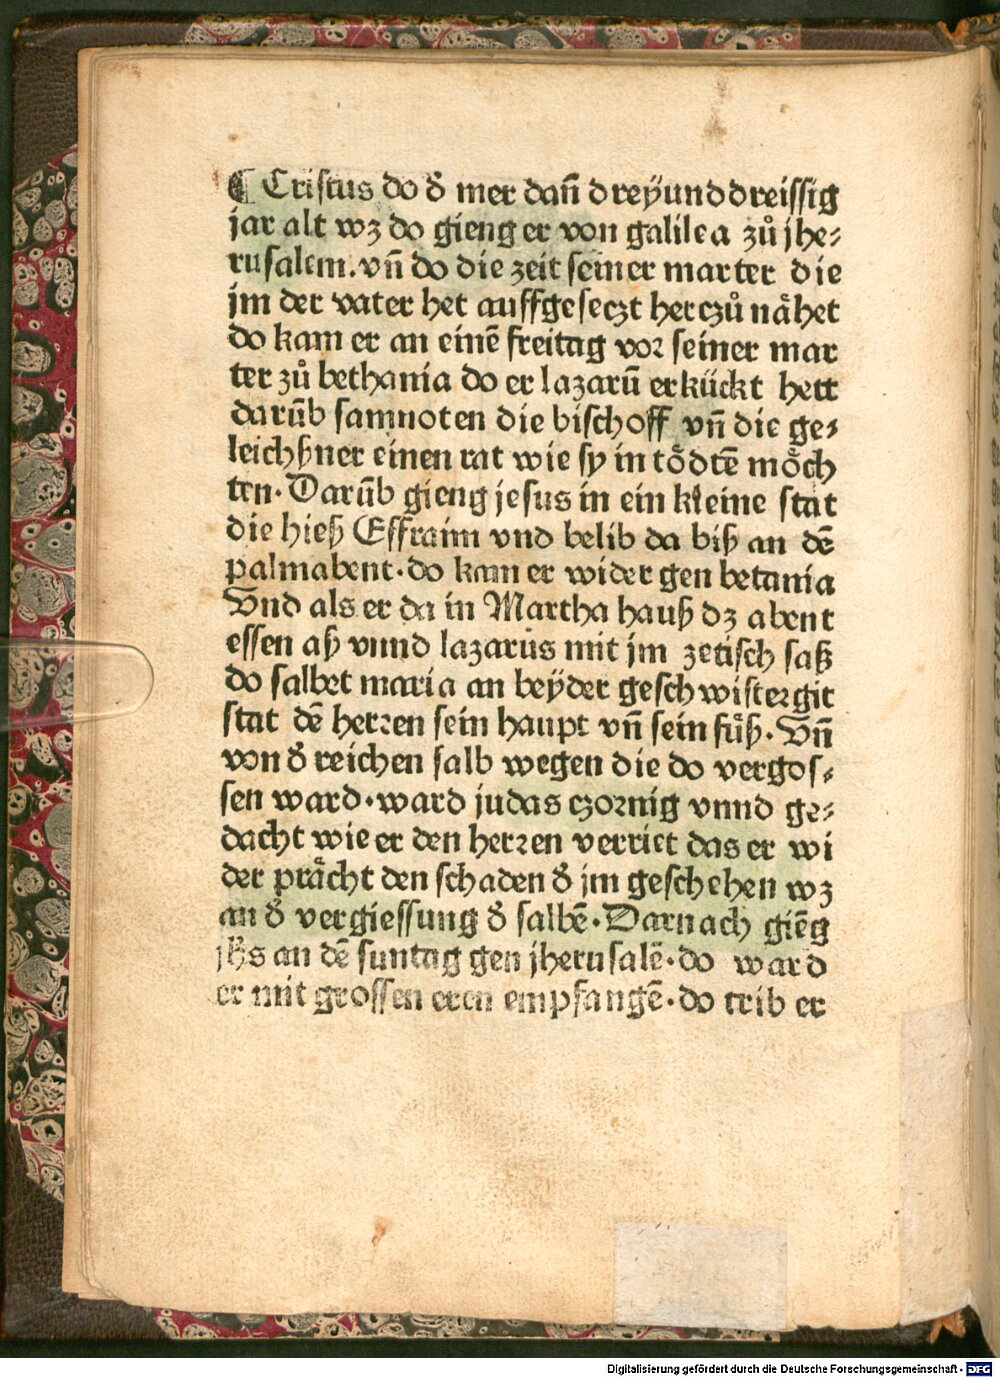 ¶ Cristus do d̕ mer dañ dreÿunddreissig
jar alt wz do gieng er von galilea zů jhe⸗
rusalem. vñ do die zeit seiner marter die
jm der vater het auffgeseczt herczů nåhet
do kam er an einē freitag vor seiner mar
ter zů bethania do er lazarū erkückt hett
darūb samnoten die bischoff vñ die ge⸗
leichßner einen rat wie sy in tödtē möch
ten· Darūb gieng jesus in ein kleine stat
die hieß Effraim vnd belib da biß an dē
palmabent· do kam er wider gen betania
Vnd als er da in Martha hauß dz abent
essen aß vnnd lazarus mit jm zetisch saß
do salbet maria an beÿder geschwistergit
stat dē herren sein haupt vñ sein fůß· Vñ
von d̕ reichen salb wegen die do vergos⸗
sen ward· ward judas czornig vnnd ge⸗
dacht wie er den herren verriet das er wi
der prächt den schaden d̕ jm geschehen wz
an d̕ vergiessung d̕ salbē· Darnach giēg
jhs an dē suntag gen jherusalē· do ward
er mit grossen eren empfangē· do trib er
Digitalisierung gefördert durch die Deutsche Forschungsgemeinschaft - DFG